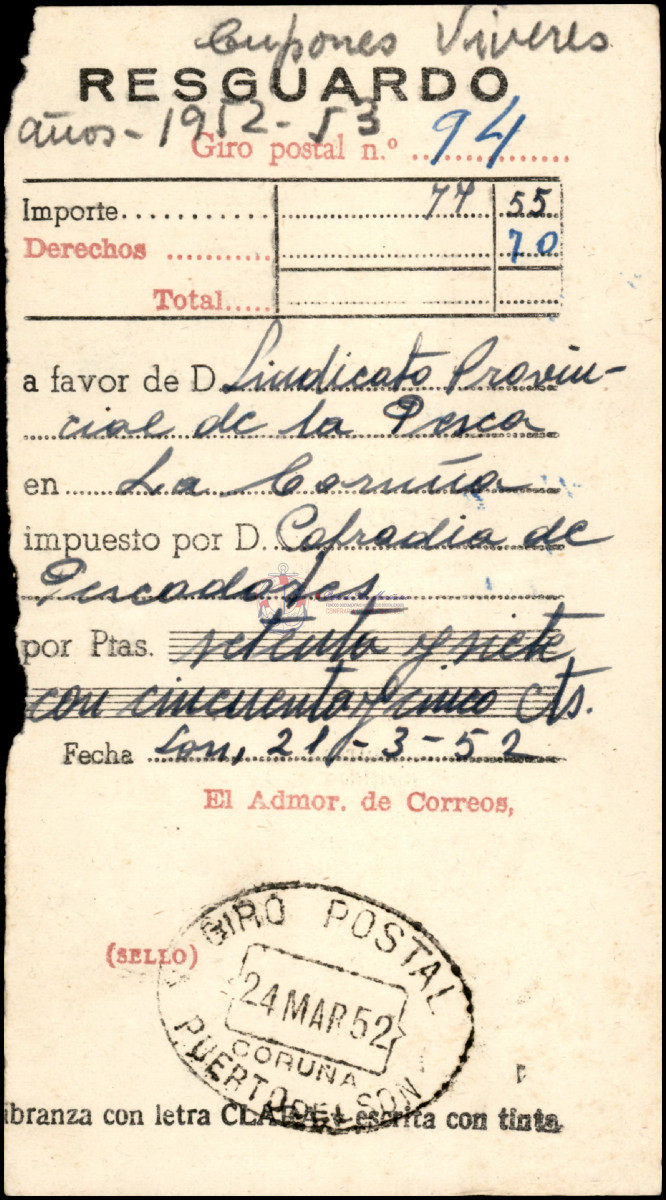 Cupones Viveres
RESGUARDO
años - 1952 - 53
Giro postal n.º 94
Importe 77 55
Derechos 70
Total
a favor de D. Sindicato Provin-
cial de la Pesca
en La Coruña
impuesto por D. Cofradia de
Pescadores
por Ptas. setenta y siete
con cincuenta y cinco cts.
Fecha Son, 21-3-52
El Admor. de Correos,
(SELLO)
GIRO POSTAL
24 MAR 52
CORUÑA
PUERTO DEL SON
ibranza con letra CLARA y escrita con tinta